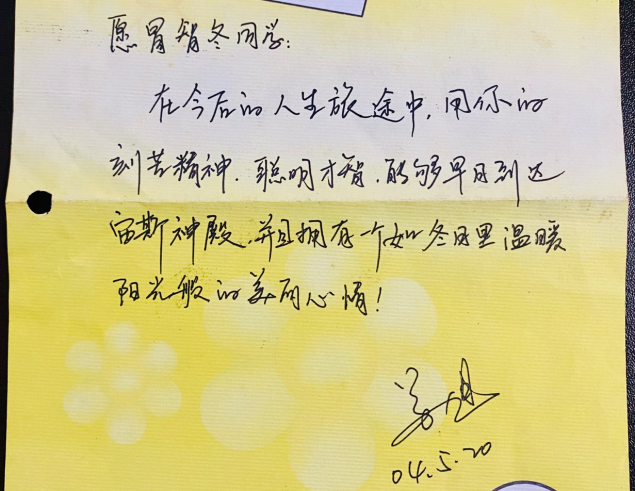 愿胃智冬同学:
在今后的人生旅途中,用你的
刻苦精神、聪明才智,能够早日到达
宙斯神殿,并且拥有一个如冬日里温暖
阳光般的美丽心情!
04.5.20